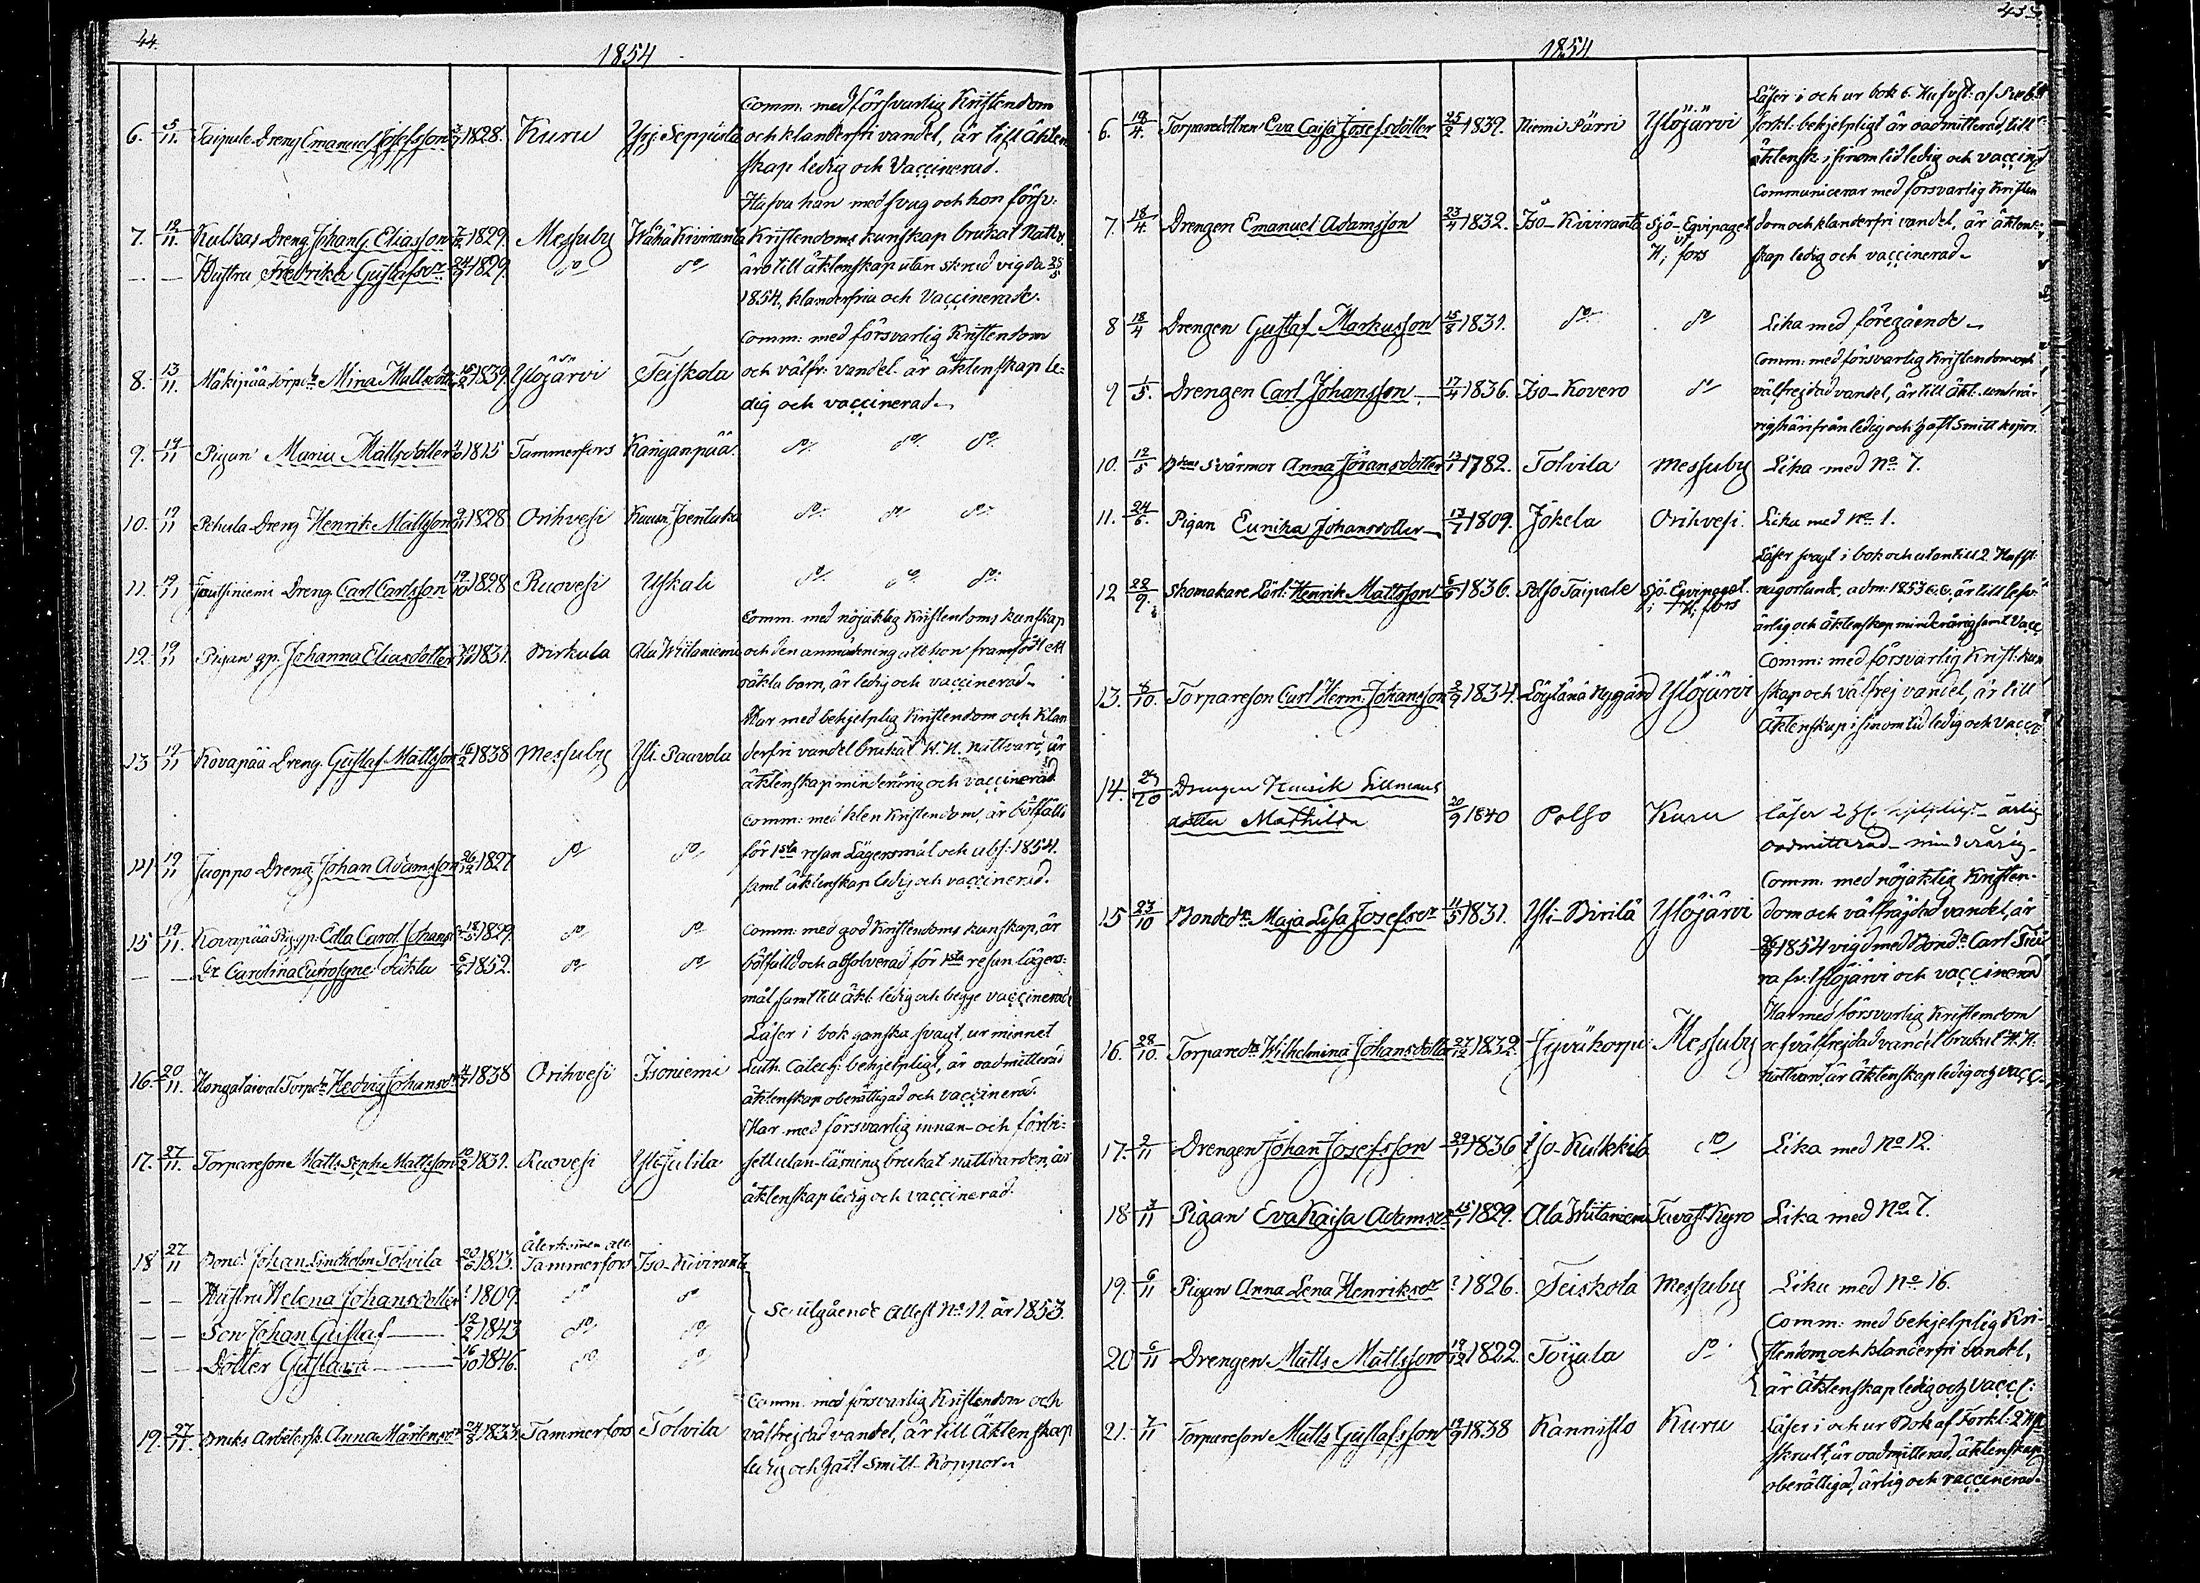 44.
1854
6. 5/11. Taipale Dreng Emanuel Josefsson 1828. Kuru Yrj. Seppäla
Comm. med försvarlig Kristendom
och klanderfri vandel, är till äkten
skap ledig och Vaccinerad.
7. 12/11. Kulkas Dreng Johan G. Eliasson 1829. Messuby Wähä Kiviranta
— — Hustru Fredrika Gustafsdr 24/9 1829 do do
Hafva han med svag och hon försv:
Kristendoms kunskap brukat Nattv.
äro till äktenskap utan skrud vigda 25/5
1854, klanderfria och Vaccinerade.
8. 13/11. Mäkipää Mina Mattsdr 1839. Ylöjärvi Teiskola
Comm: med försvarlig Kristendom
och välfr: vandel är äktenskap le-
dig och vaccinerad.
9. 14/11 Pigan Maria Mattsdotter 1815 Tammerfors Kanganpää do do do
10. 19/11 Pehula Dreng Henrik Mattsson 1828 Orihvesi Kauan Joenlaka do do do
11. 19/11 Dreng Carl Carlsson 19/10 1828 Ruovesi Yskali do do do
12. 19/11 Pigan gp. Johanna Eliasdotter 1831. Birkala Ala Wiitaniemi
Comm. med nöjaktig Kristendoms kunskap
och den anmärkning att hon framfödt ett
oäkta barn, är ledig och vaccinerad.
13 19/11 Kovapää Dreng. Gustaf Mattsson 16/2 1838 Messuby Yli Paavola
Har med behjelplig Kristendom och klan
derfri vandel brukat H. H. nattvard, är
äktenskap minderårig och vaccinerad.
14 19/11 Juoppo Dreng Johan Adamsson 26/12 1827 do do
Comm: med klen Kristendom, är bötfälld
för 1sta resan Lägersmål och abs: 1854.
samt äktenskap ledig och vaccinerad.
15 19/11. Kovapää Pig. gp. Edla Carol. Johansdr 1829. do do
— — Dr Carolina Eufrosyne oäkta 1852. do do
Comm: med god Kristendoms kunskap, är
bötfälld och absolverad för 1sta resan lägers-
mål, samt till äkt: ledig och begge vaccinerade
16. 20/11. Torpdr Hedvig Johansdr 1838 Orihvesi Isoniemi
Läser i bok ganska svagt, ur minnet
Luth. Catech: behjelpligt, är oadmitterad
äktenskap oberättigad och vaccinerad.
17. 27/11. Torparesone Matts Seph. Mattsson 1831. Ruovesi Yliojulila
Har med försvarlig innan- och förbi-
sett utan-läsning brukat nattvarden, är
äktenskap ledig och vaccinerad.
18 27/11 Bond. Johan Lindholm Tolvila 20/6 1813. Återkomen att: Tammerfors Iso-Kiviranta
— — Hustru Helena Johansdotter 1809. do do
— — Son Johan Gustaf — 12/2 1843 do do
— — Dotter Gustava — 16/10 1846. do do
Se: utgående Attest No 11. år 1853.
19. 27/11. Bruks Arbetersk. Anna Mårtensdr 24/8 1833. Tammerfors Tolvila
Comm. med försvarlig Kristendom och
välfrejdad vandel, är till Äktenskap
ledig och haft Smitt-Koppor.
1854.
6. 18/4. Torparedottren Eva Caisa Josefsdotter 25/2 1839. Niemi Pärri Ylöjärvi
Läser i och ur bok 6. Hufvst: af Sveb:
förkl: behjelpligt är oadmitterad, till
äktensk. i sinom tid ledig och vaccin.
7. 18/4. Drengen Emanuel Adamsson 23/4 1832. Iso-Kiviranta Sjö-Eqvipaget i H: fors
Communicerar med försvarlig Kristen
dom och klanderfri vandel, är äkten-
skap ledig och vaccinerad.
8 18/4 Drengen Gustaf Markusson 15/8 1831. do do Lika med föregående.
9 1/5. Drengen Carl Johansson — 17/4 1836. Iso-Kovero do
Comm: med försvarlig Kristendom och
välfrejdad vandel, är till äkt. underå-
rig härifrån ledig och haft Smitt kopor.
10. 12/5 Bdens Svärmor Anna Göransdotter 13/1 1782. Tolvila Messuby Lika med No 7.
11. 24/6. Pigan Eunika Johansdotter 13/7 1809. Jokela Orihvesi. Lika med No 1.
12 22/9. Skomakare Lärl: Henrik Mattsson 1836. Polso Taipale Sjö Eqvipaget. i H: fors
Läser svagt i bok och utantill 2 Hufst:
någorlunda, adm: 1853 är till lefv.
ärlig och äktenskap minderårig samt Vacc
13. 10. Torpareson Carl Herm: Johansson 2/9 1834. Löytänä Nygård Ylöjärvi
Comm: med försvarlig Krist: kun
skap och välfrej vandel, är till
Äktenskap i sinom tid ledig och Vacc.
14. 21/10 Drengen Henrik Lillmans
dotter Mathilda 20/9 1840 Polso Kuru
läser 2 hf. hjelpligt ärlig
oadmitterad minderårig
15 23/10 Bondedr Maja Lisa Josefsdr 11/5 1831. Yli-Birilä Ylöjärvi
Comm. med nöjaktig Kristen-
dom och välfräjdad vandel, är
1854 vigd med Bonde Carl Sii
ra fr: Ylöjärvi och vaccinerad
16. 28/10. Torparedr Wilhelmina Johansdotter 27/12 1832. Hyväkorpi Messuby
Har med försvarlig Kristendom
och välfrejdad vandel brukat H. H.
nattvard är Äktenskap ledig och vacc.
17. 2/11 Drengen Johan Josefsson 29/1 1836 Iso-Kulkkila do Lika med No 12.
18 11 Pigan Eva Kaisa Adamsdr 15/1 1829. Ala Wiitaniemi Tavast Kyro Lika med No 7.
19. 6/11 Pigan Anna Lena Henriksdr ? 1826. Teiskola Messuby Lika med No 16.
20 6/11 Drengen Matts Mattsson 19/12 1822. Toijala do
Comm: med behjelplig Kri-
stendom och klanderfri vandel,
är Äktenskap ledig och Vacc:
21. 7/11 Torpareson Matts Gustafsson 19/9 1838 Kannisto Kuru
Läser i och ur Bok af Förkl: 2 Hfst
skralt, är oadmitterad, äktenskap
oberättigad, ärlig och vaccinerad.